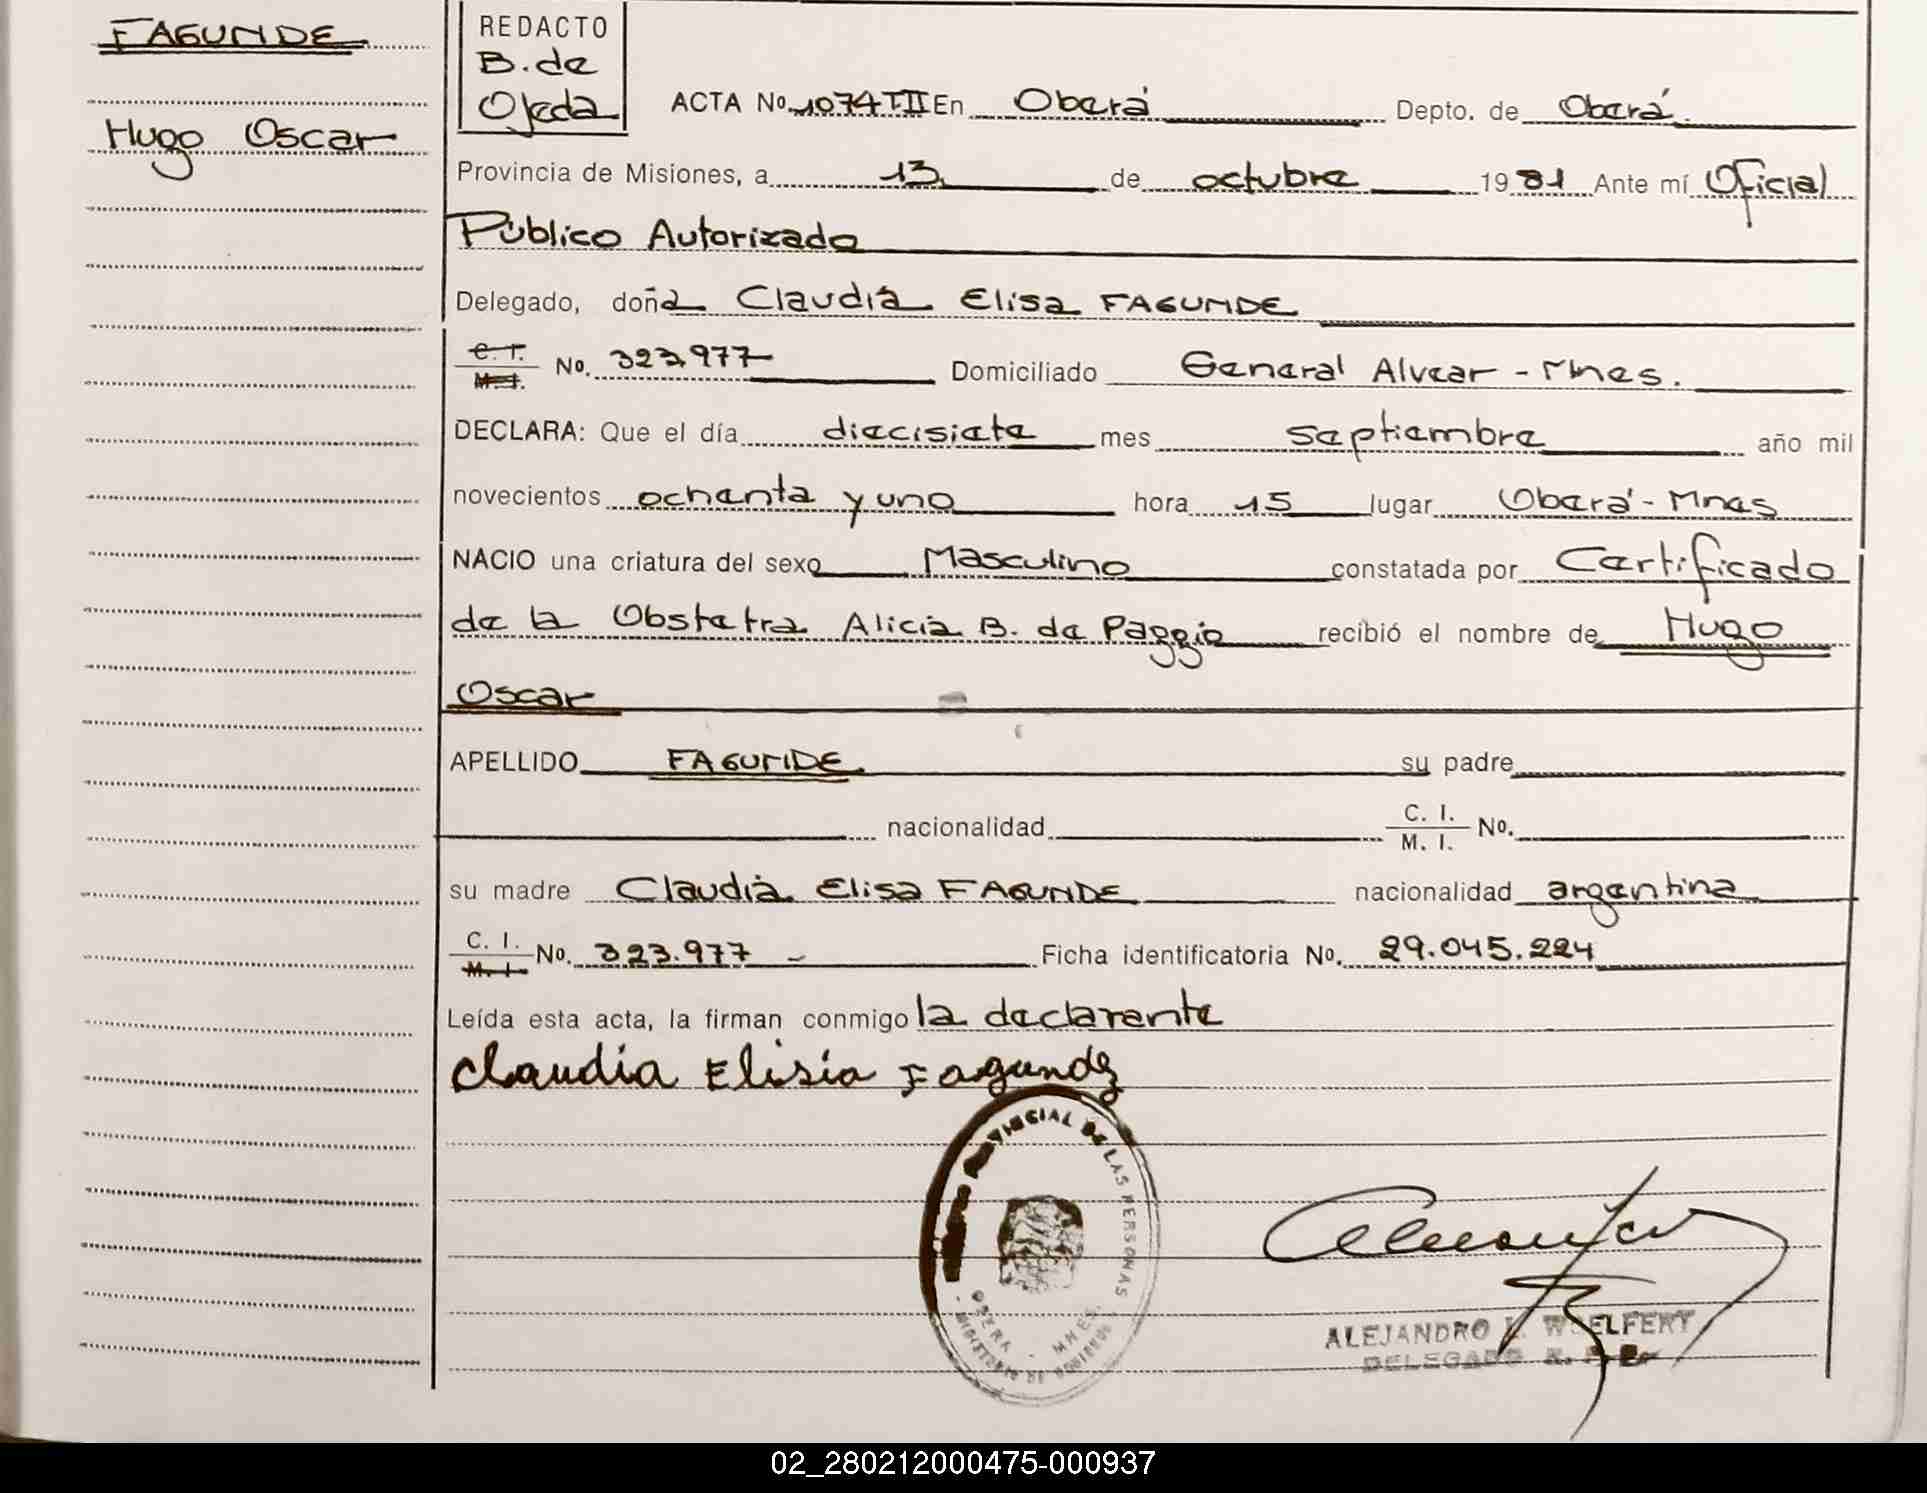 FAGUNDE
Hugo Oscar
REDACTO
B. de
Ojeda
ACTA No. 1074 TII En Oberá Depto. de Oberá.
Provincia de Misiones, a 13 de octubre 1981 Ante mí Oficial
Público Autorizado
Delegado, doña Claudia Elisa FAGUNDE
C. I.
M. I. No. 323.977 Domiciliado General Alvear - Mnes.
DECLARA: Que el día diecisiete mes septiembre año mil
novecientos ochenta y uno hora 15 lugar Oberá - Mnes
NACIO una criatura del sexo Masculino constatada por Certificado
de la Obstetra Alicia B. de Paggio recibió el nombre de Hugo
Oscar
APELLIDO FAGUNDE su padre
nacionalidad C. I.
M. I. No.
su madre Claudia Elisa FAGUNDE nacionalidad argentina
C. I.
M. I. No. 323.977 - Ficha identificatoria No. 29.045.224
Leída esta acta, la firman conmigo la declarante
Claudia Elisia Fagundez
PROVINCIAL DE LAS PERSONAS
OBERA - MNES.
MINISTERIO DE GOBIERNO
ALEJANDRO WOELFERT
DELEGADO
02_280212000475-000937